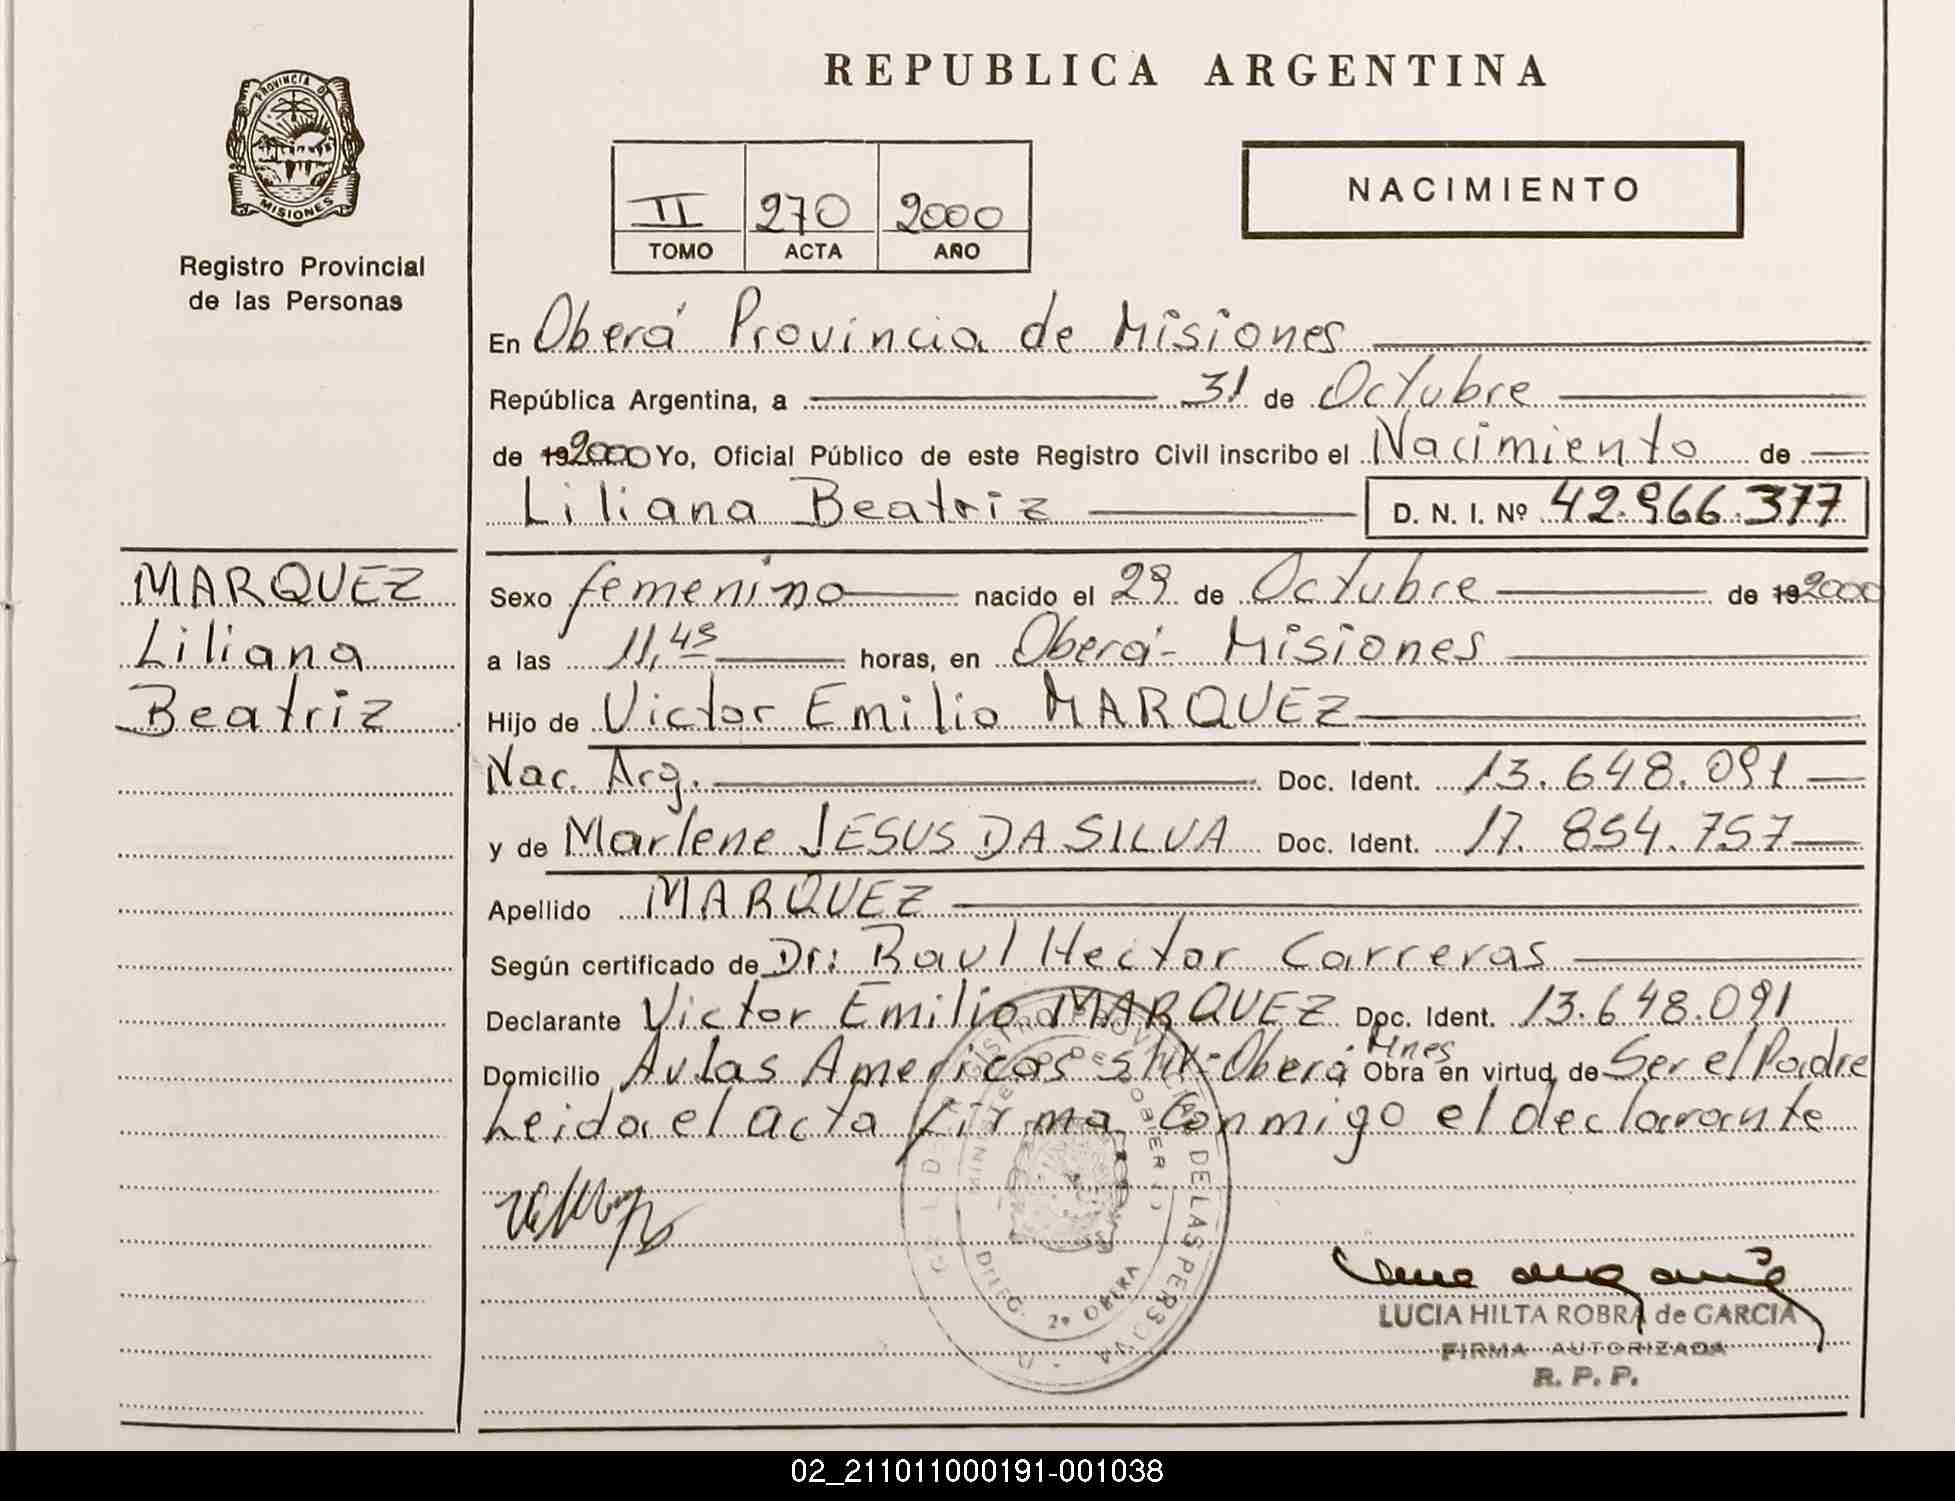 REPUBLICA ARGENTINA
PROVINCIA D
MISIONES
Registro Provincial
de las Personas
II 270 2000
TOMO ACTA AÑO
NACIMIENTO
En Oberá Provincia de Misiones
República Argentina, a 31 de Octubre
de 192000 Yo, Oficial Público de este Registro Civil inscribo el Nacimiento de
Liliana Beatriz D. N. I. Nº 42.966.377
MARQUEZ
Liliana
Beatriz
Sexo femenino nacido el 29 de Octubre de 192000
a las 11,45 horas, en Oberá - Misiones
Hijo de Victor Emilio MARQUEZ
Nac. Arg. Doc. Ident. 13.648.091
y de Marlene JESUS DA SILVA Doc. Ident. 17.854.757
Apellido MARQUEZ
Según certificado de Dr: Raul Hector Carreras
Declarante Victor Emilio MARQUEZ Doc. Ident. 13.648.091
Domicilio Avlas Americas s/nº - Oberá Mnes Obra en virtud de Ser el Padre
Leida el acta firma conmigo el declarante
DE LAS PERSONA
DELEG. 2º OBERA
LUCIA HILTA ROBRA de GARCIA
FIRMA AUTORIZADA
R. P. P.
02_211011000191-001038